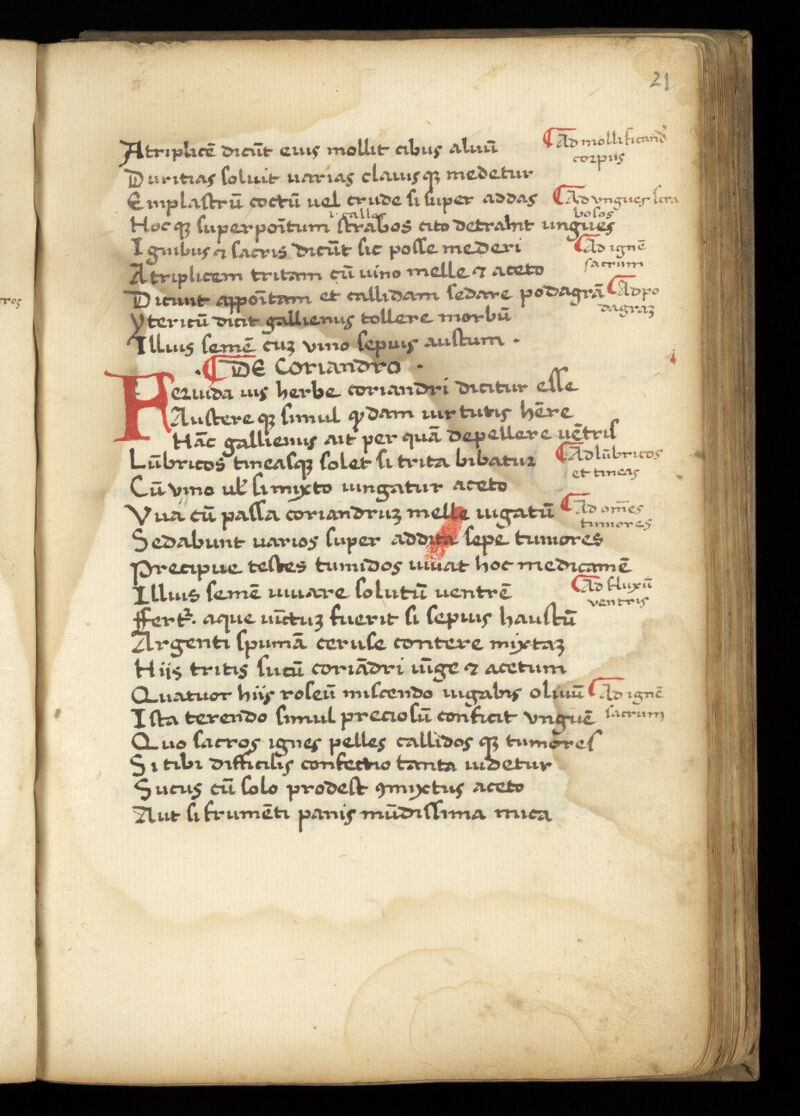 21
Atriplicē dicūt eius mollit cibus aluū
Ad mollificand
corpus
Duritias soluit uarias clauisqꝫ medetur
Emplastrū coctū uel crude si super addas
Ad vngues scra
bosos
Hoc qꝫ superpoītum strabos cito detrahit ungues
Ignibus ⁊ sacris dicūt sic posse mederi
Ad ignē
sacrum
Atriplicem tritam cū uino melle ⁊ aceto
Dicunt appoītam et callidam sedare podagrā
Ad po
dagraꝫ
Ytericū dicit gallienus tollere morbū
Illius semē cuꝫ vino sepius austum
DE Coriandro
Frigida uis herbe coriandri dicitur esse
Austereqꝫ simul q̄dam uirtutis hēre
Hāc gallienus ait per quā depellere uētris
Lūbricos tineasqꝫ solet si trita bibatur
Ad lūbricos
et tineas
Cū vino ul' si mixto iungatur aceto
Vua cū passa coriandruꝫ melle iugatū
Ad om̄es
tumores
Sedabunt uarios super addita sepe tumores
Precipue testes tumidos iuuat hoc medicamē
Illius semē iuuare solutū uentrē
Ad fluxū
ventris
ffert². aque uīctuꝫ fuerit si sepius haustū
Argenti spumā ceruse contere mixtaꝫ
Hiis tritis sucū coriādri iūge ⁊ acetum
Quatuor hiis roseū miscendo iugabis oliuū
Ad ignē
sacrum
Ista terendo simul preciosū conficit vnguē
Quo sacros ignes pelles callidos qꝫ tumores
Si tibi difficilis confectio tanta uidetur
Sucus cū solo prodest ꝯmixtus aceto
Aut si frumēti panis mūdissima mica